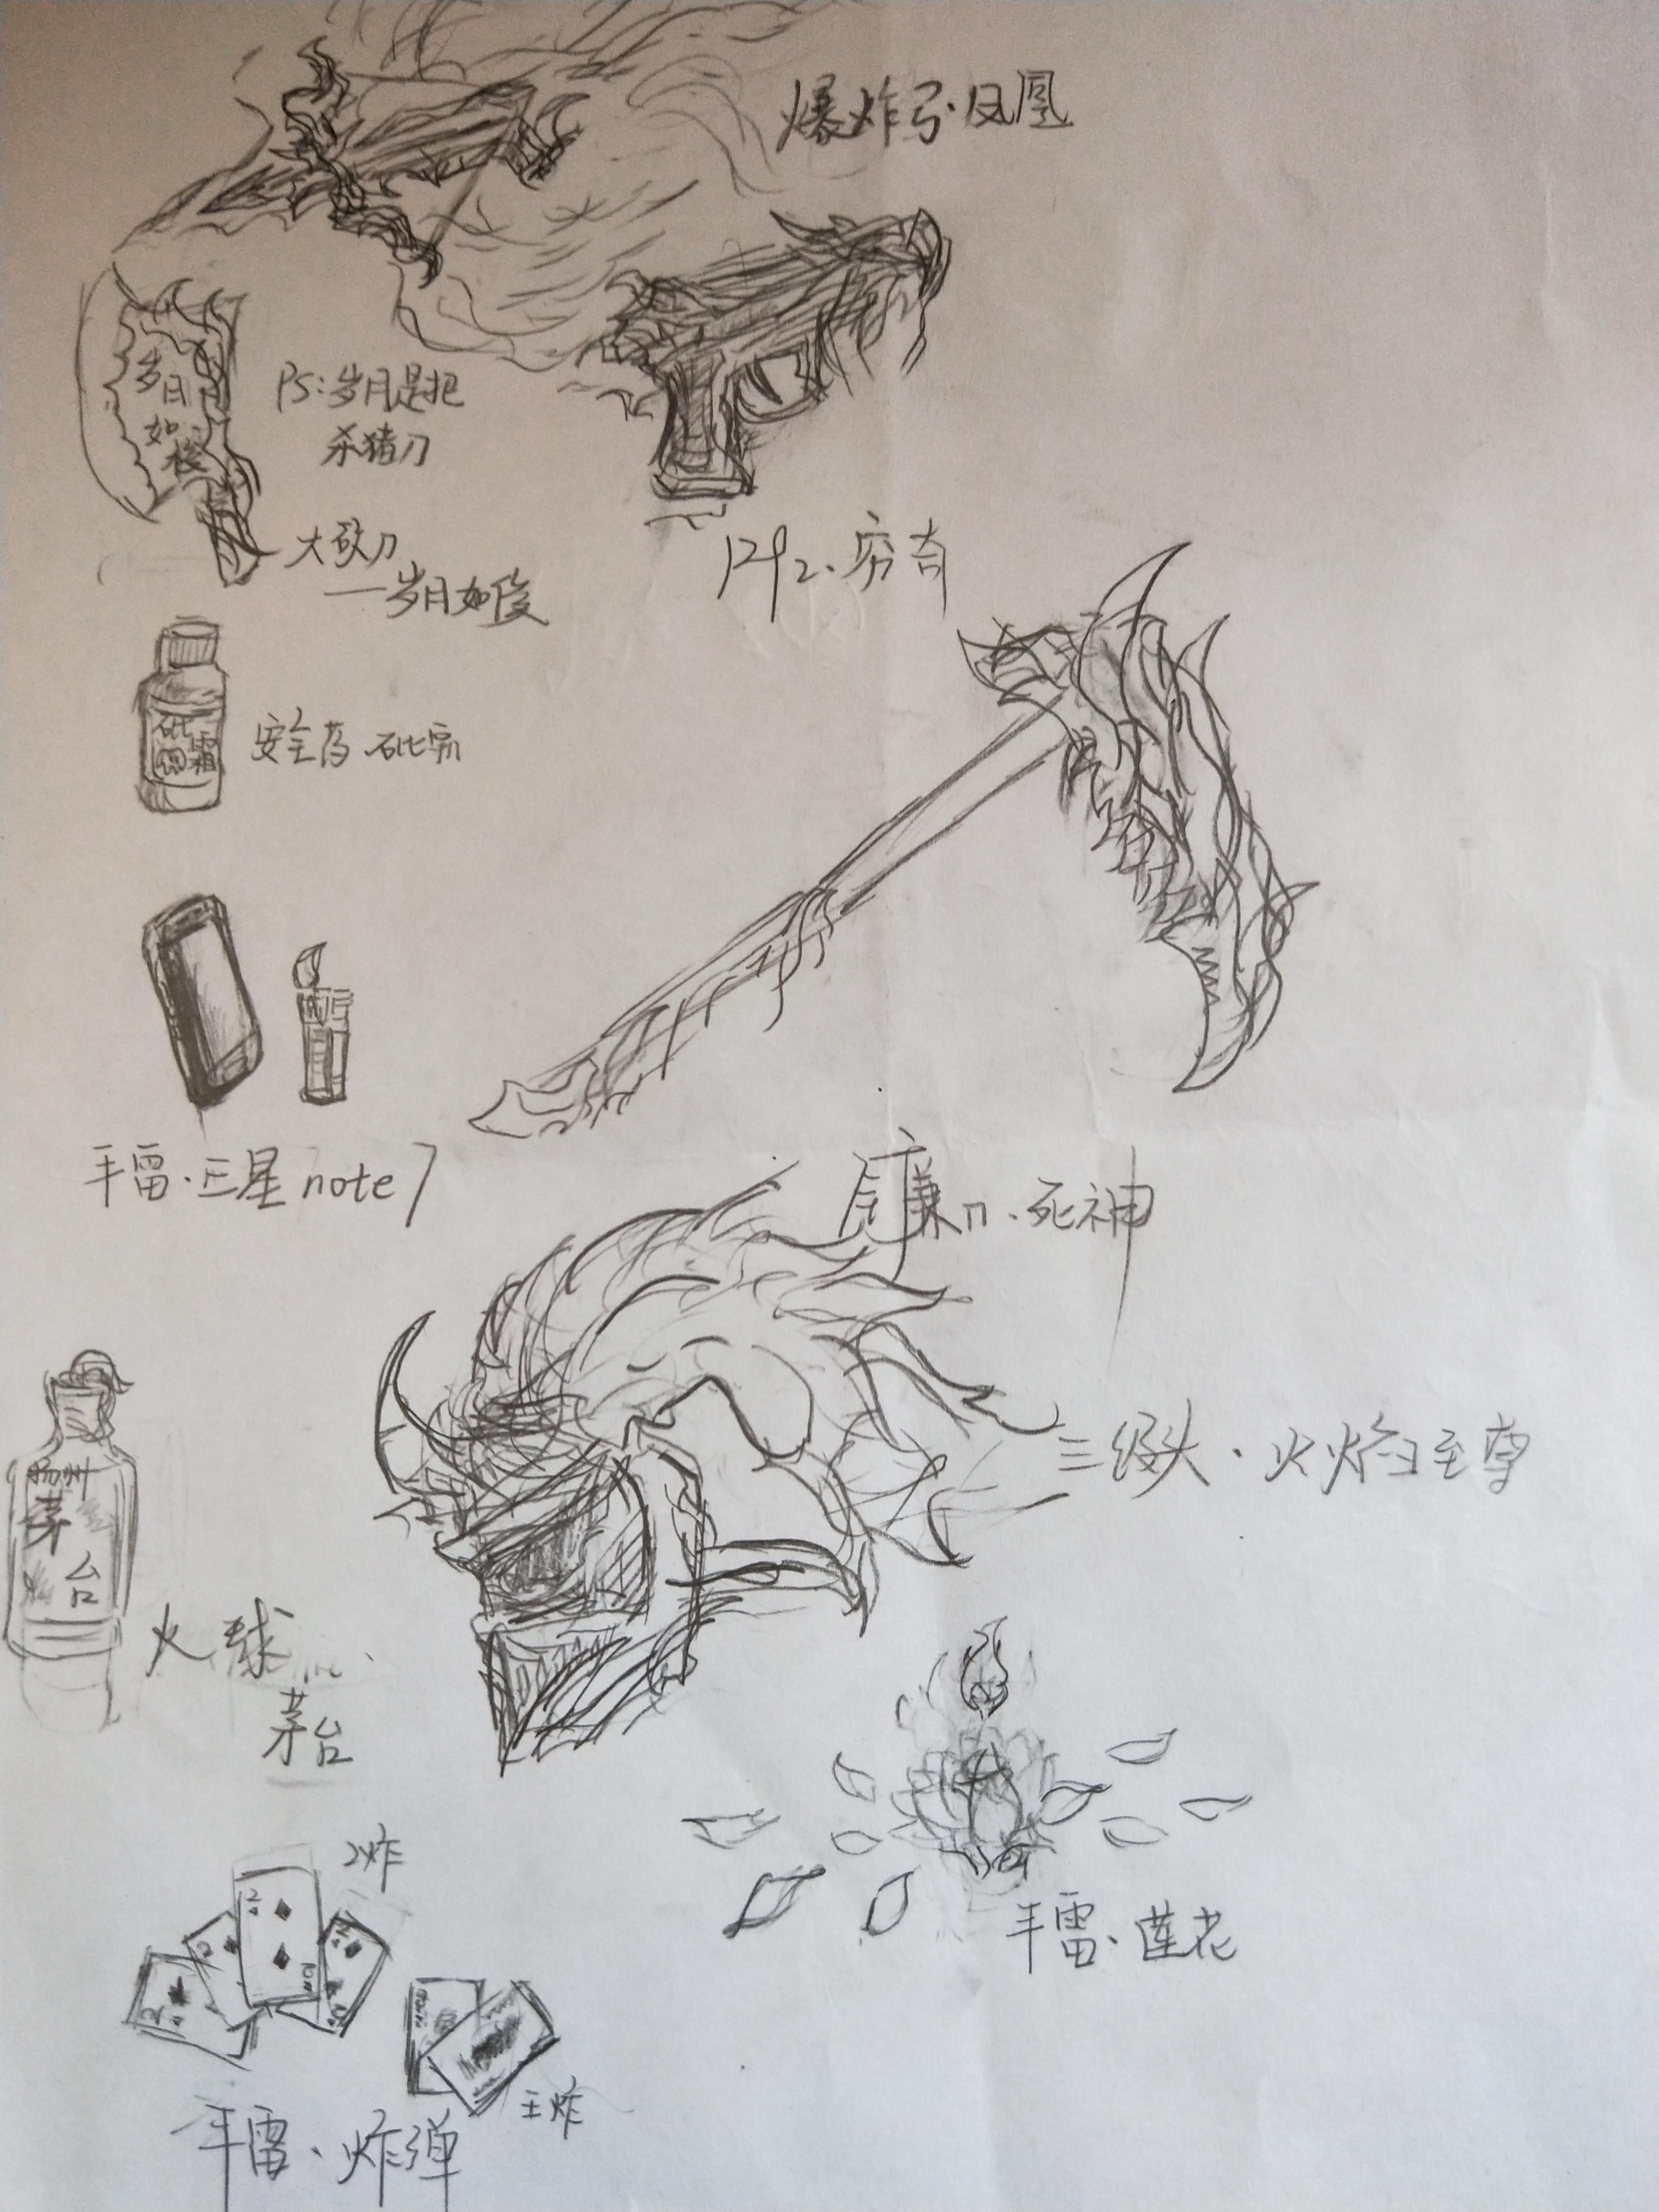 爆炸弓·凤凰
岁月
如梭
PS:岁月是把
杀猪刀
大砍刀
—岁月如梭
1911、穷奇
砒
霜
安全药 砒霜
手雷·三星note7
镰刀·死神
三级头·火焰至尊
扬州
茅
台
火球
茅台
2炸
手雷·莲花
王炸
手雷、炸弹